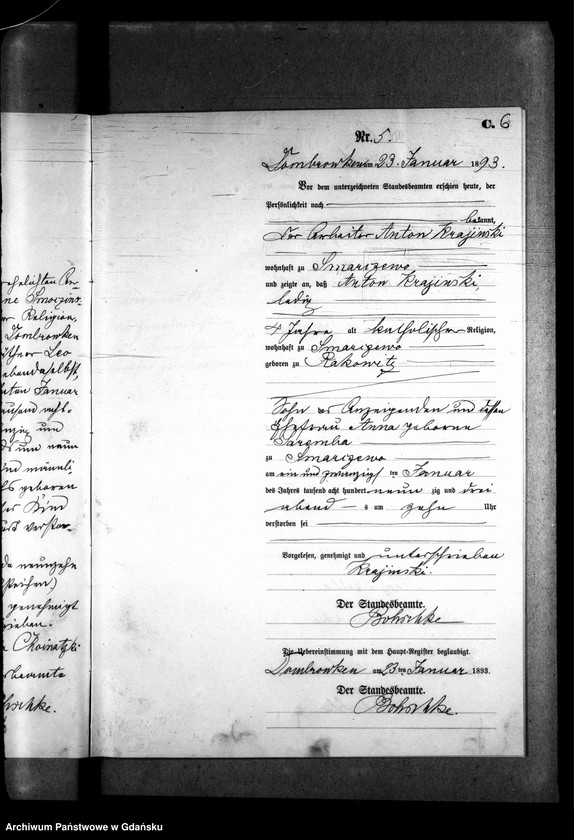 ehelichten An-
ne Smoczins-
Religion,
Dombrowken
Leo
ebendaselbst,
Januar
tausend acht-
und
und neun
und männli
geboren
Kind
verstor-
neunzehn
genehmigt
Choinatzki
C. 6
Nr. 5.
Dombrowken am 23. Januar 1893.
Vor dem unterzeichneten Standesbeamten erschien heute, der
Persönlichkeit nach
bekannt,
der Arbeiter Anton Krajinski
wohnhaft zu Smarzewo
und zeigte an, daß Anton Krajinski,
ledig
4 Jahre alt katholischer Religion,
wohnhaft zu Smarzewo
geboren zu Rakowitz
Sohn des Anzeigenden und dessen
Ehefrau Anna geborene
zu Smarzewo
am ein und zwanzigsten Januar
des Jahres tausend acht hundert neun zig und drei
abend s um zehn Uhr
verstorben sei
Vorgelesen, genehmigt und unterschrieben
Krajinski.
Der Standesbeamte.
Bohschke
Die Uebereinstimmung mit dem Haupt-Register beglaubigt.
Dombrowken am 23 ten Januar 1893.
Der Standesbeamte.
Bohschke.
Archiwum Państwowe w Gdańsku